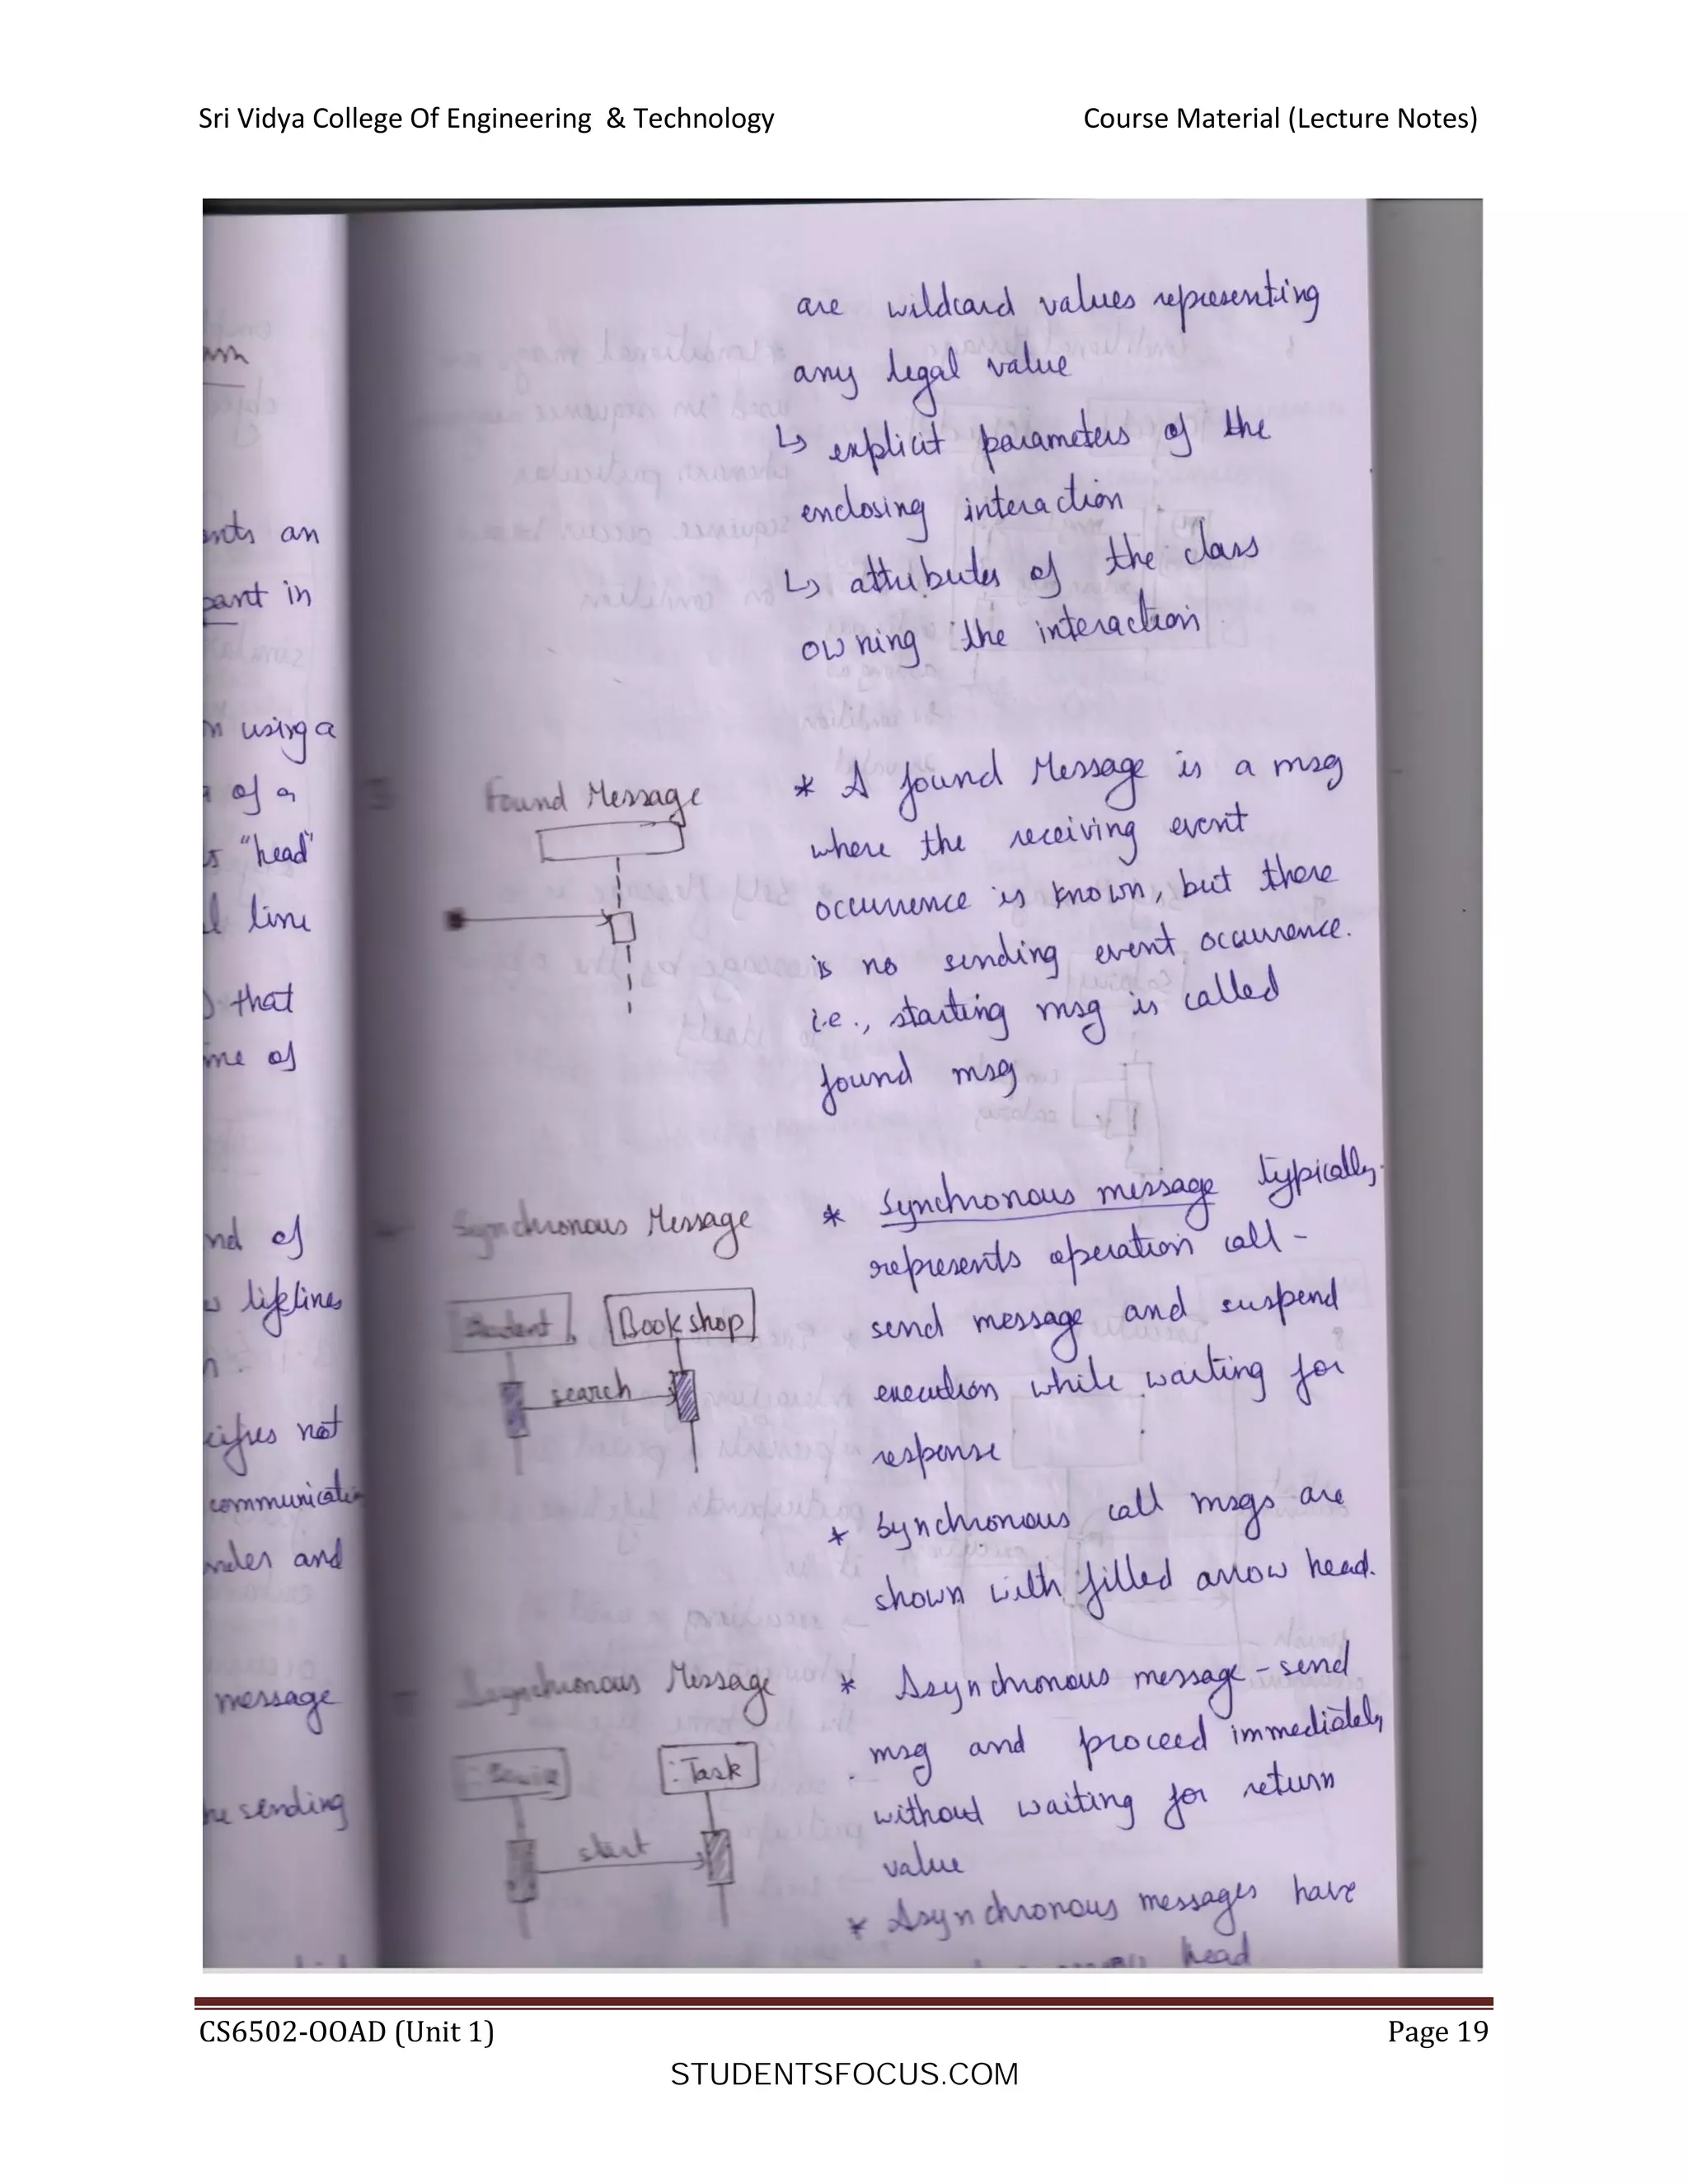 Sri Vidya College Of Engineering & Technology Course Material (Lecture Notes)
are wildcard values representing
any legal value
↳ explicit parameters of the
enclosing interaction
↳ attributes of the class
owning the interaction
ents an
part in
using a
of a
"head"
line
that
me of
nd of
lifelines
cifies not
communicatio
nder and
message
he sending
Found Message
* A found Message is a msg
where the receiving event
occurrence is known, but there
is no sending event occurrence.
i.e., starting msg is called
found msg
Synchronous Message
Student
Book shop
search
* Synchronous message typically
represents operation call -
send message and suspend
execution while waiting for
response
* Synchronous call msgs are
shown with filled arrow head.
Asynchronous Message
: Task
start
* Asynchronous message - send
msg and proceed immediately
without waiting for return
value
* Asynchronous messages have
head
CS6502-OOAD (Unit 1) Page 19
STUDENTSFOCUS.COM